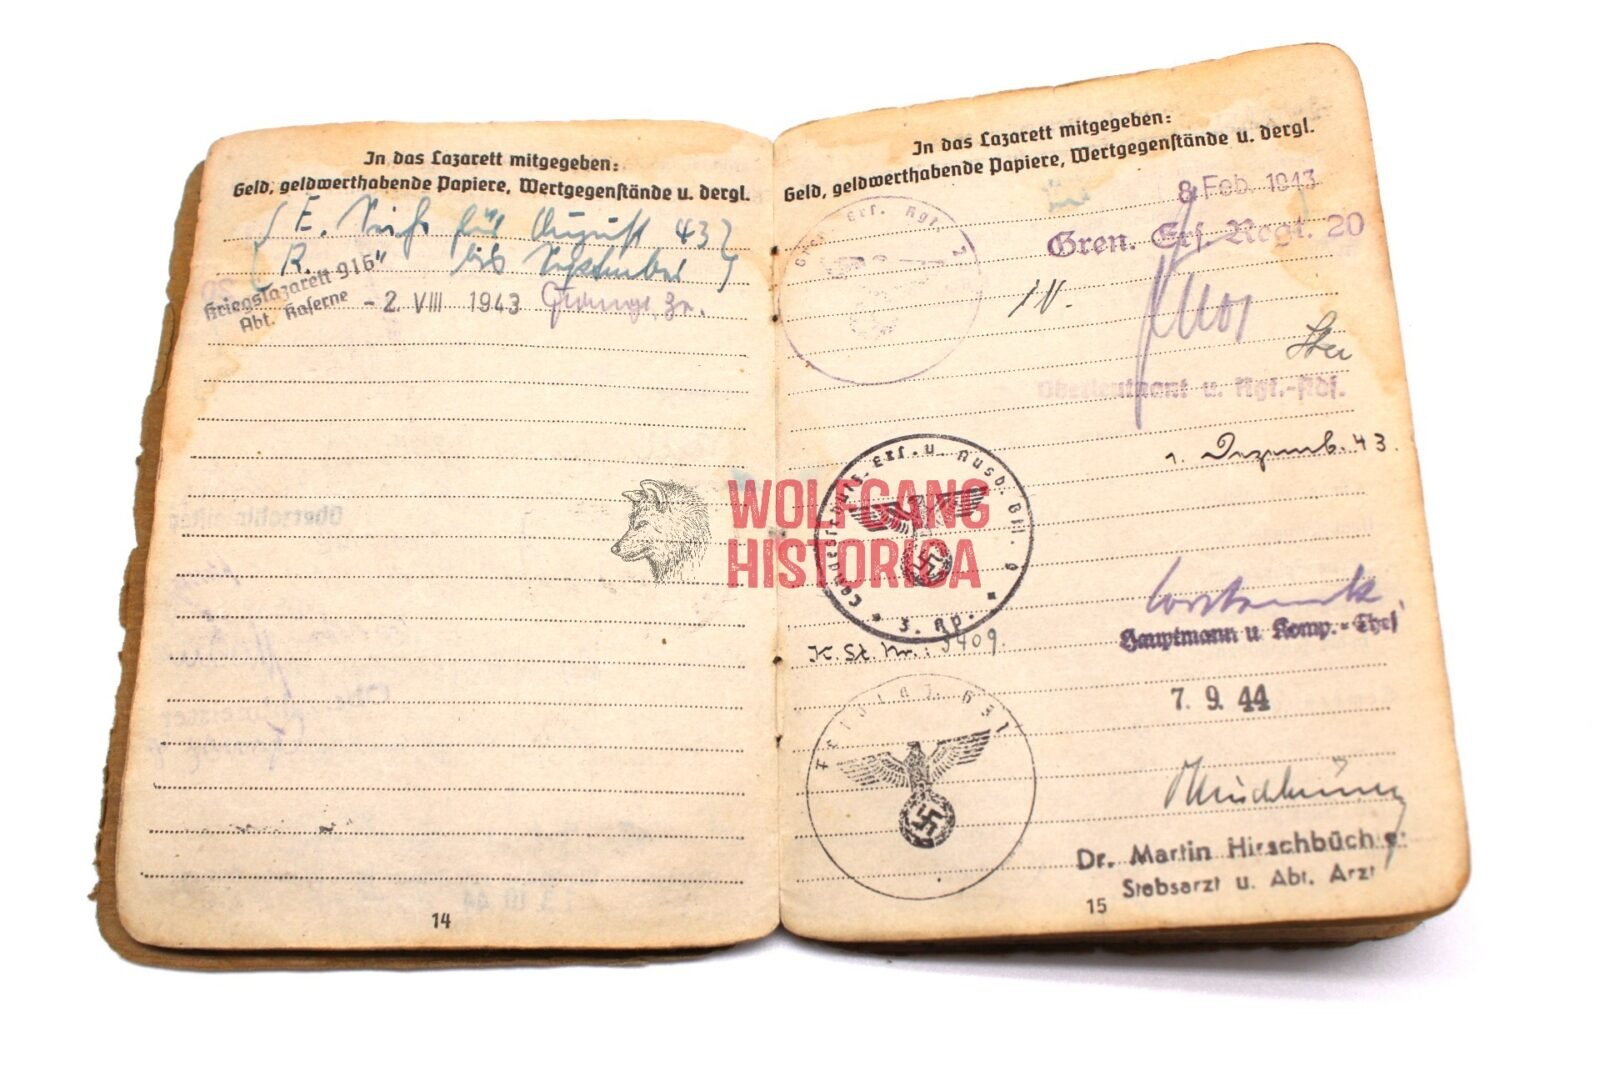 In das Lazarett mitgegeben:
Geld, geldwerthabende Papiere, Wertgegenstände u. dergl.
E. für August 43
R. bis September
Kriegslazarett 916
Abt. Kaserne
- 2. VIII 1943
14
WOLFGANG
HISTORICA
In das Lazarett mitgegeben:
Geld, geldwerthabende Papiere, Wertgegenstände u. dergl.
8. Feb. 1943
Gren. Ers. Regt. 20
Gren. Ers. Rgt.
IV.
Oberleutnant u. Rgt.-Adj.
1. Dezemb. 43.
Landesschütz. Ers. u. Ausb. Btl. 9
3. Kp.
Hauptmann u. Komp.-Chef
K. St. Nr.: 3409.
7. 9. 44
Dr. Martin Hirschbüch
Stabsarzt u. Abt. Arzt
15